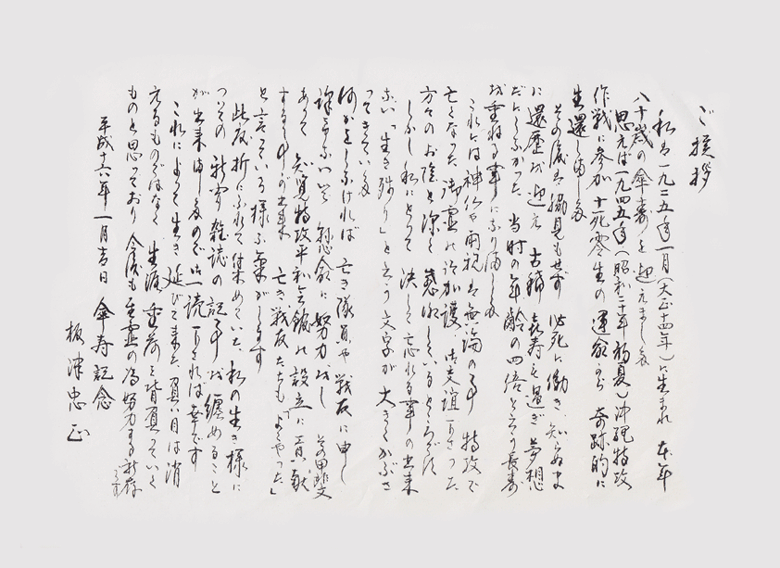 ご挨拶
私は一九二五年一月(大正十四年)に生まれ 本年
八十歳の傘寿を迎えました
思えば一九四五年(昭和二十年初夏)沖縄特攻
作戦に参加 十死零生の運命から 奇跡的に
生還しました
その後は脇見もせず 必死に働き 知らぬま
に還歴を迎え 古稀 喜寿を過ぎ 夢想
だにしなかった 当時の年齢の四倍と言う長寿
を重ねる事になりました
これには神仏や両親は無論の事 特攻で
亡くなった御霊の御加護 御交誼下さった
方々のお陰と深く感謝しているところです
しかし私にとって 決して忘れる事の出来
ない「生き残り」と言う文字が 大きくかぶさ
ってきている
何かをしなければ 亡き隊員や戦友に申し
訳ないと 懸命に努力をし その甲斐
あって 知覧特攻平和会館の設立に貢献
する事が出来 亡き戦友たちも「よくやった」
と言っている様な気がします
此度折にふれて集めていた 私の生き様に
ついての 新聞雑誌の記事を纏めること
が出来ましたので御一読下されば幸です
これによって生き延びて来た負い目は消
えるものではなく 生涯重荷を背負っていく
ものと思っており 今後も英霊の為努力する所存
です
平成十六年一月吉日 傘寿記念
板津忠正